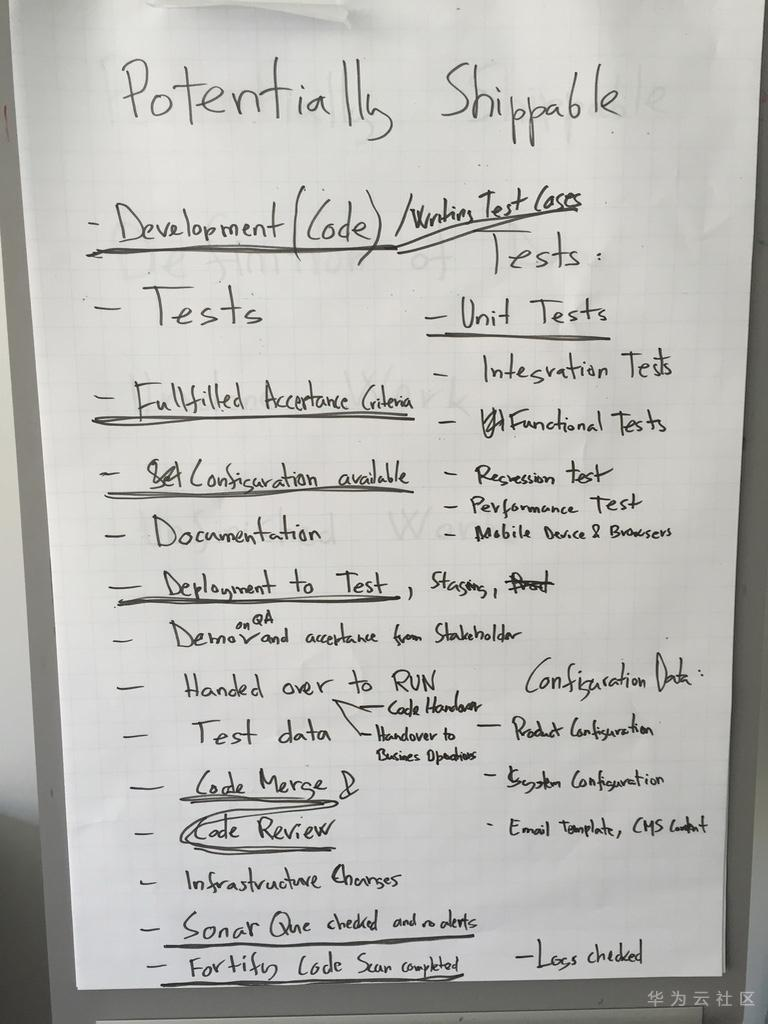 Potentially Shippable
- Development (Code) / Writing Test Cases
- Tests
- Fullfilled Acceptance Criteria
- Configuration available
- Documentation
- Deployment to Test, Staging, Prod
- Demo on QA and acceptance from Stakeholder
- Handed over to RUN
- Code Handover
- Handover to
Business Operations
- Test data
- Code Merge &
- Code Review
- Infrastructure Changes
- Sonar Que checked and no alerts
- Fortify Code Scan completed
Tests:
- Unit Tests
- Integration Tests
- Functional Tests
- Regression test
- Performance Test
- Mobile Device & Browsers
Configuration Data:
- Product Configuration
- System Configuration
- Email Template, CMS Content
- Logs checked
华为云社区